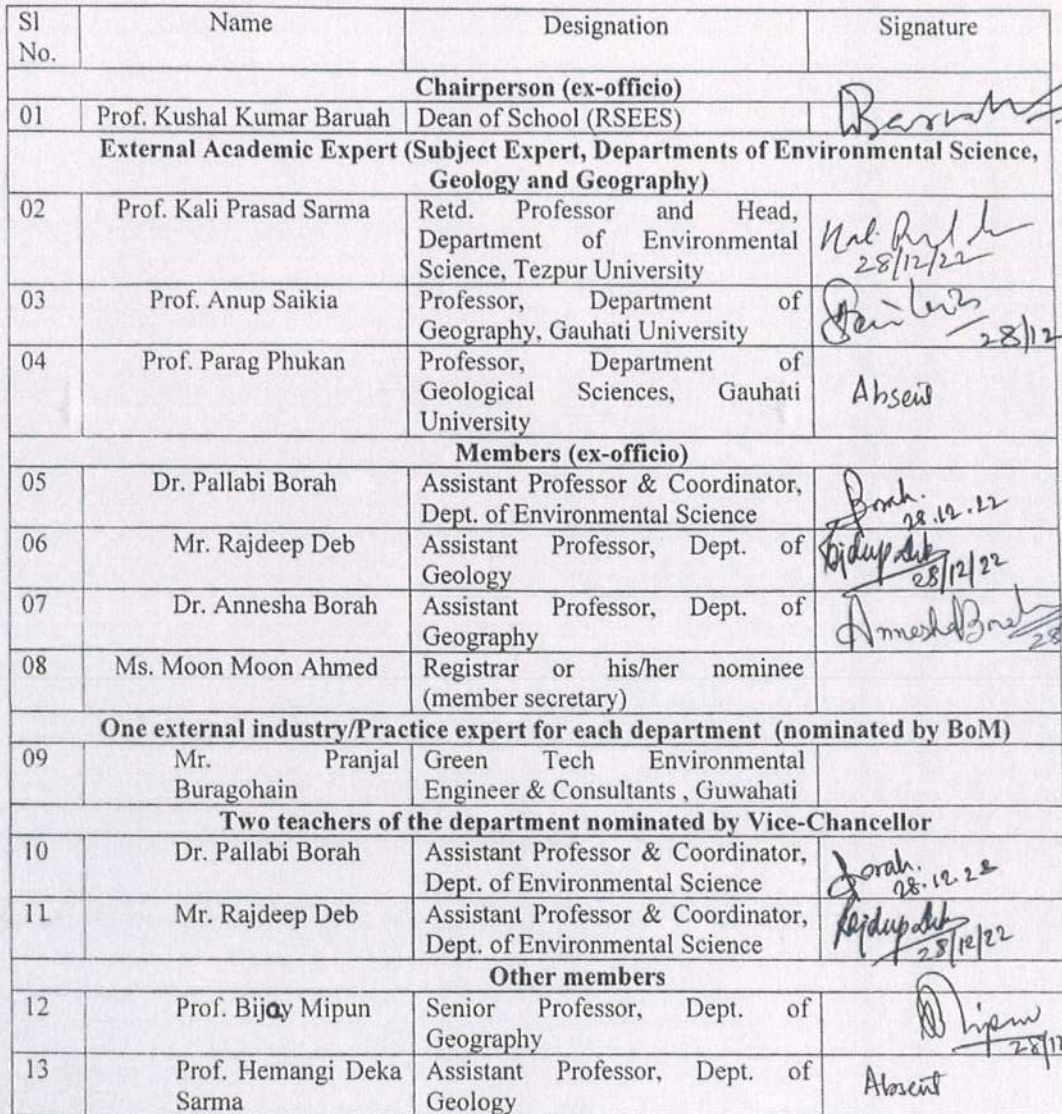 Sl No. Name Designation Signature
Chairperson (ex-officio)
01 Prof. Kushal Kumar Baruah Dean of School (RSEES)
External Academic Expert (Subject Expert, Departments of Environmental Science,
Geology and Geography)
02 Prof. Kali Prasad Sarma Retd. Professor and Head,
Department of Environmental
Science, Tezpur University
28/12/22
03 Prof. Anup Saikia Professor, Department of
Geography, Gauhati University
28/12
04 Prof. Parag Phukan Professor, Department of
Geological Sciences, Gauhati
University
Absent
Members (ex-officio)
05 Dr. Pallabi Borah Assistant Professor & Coordinator,
Dept. of Environmental Science
Borah.
28.12.22
06 Mr. Rajdeep Deb Assistant Professor, Dept. of
Geology
28/12/22
07 Dr. Annesha Borah Assistant Professor, Dept. of
Geography
Annesha Borah
28
08 Ms. Moon Moon Ahmed Registrar or his/her nominee
(member secretary)
One external industry/Practice expert for each department (nominated by BoM)
09 Mr. Pranjal Green Tech Environmental
Buragohain Engineer & Consultants , Guwahati
Two teachers of the department nominated by Vice-Chancellor
10 Dr. Pallabi Borah Assistant Professor & Coordinator,
Dept. of Environmental Science
Borah.
28.12.22
11 Mr. Rajdeep Deb Assistant Professor & Coordinator,
Dept. of Environmental Science
28/12/22
Other members
12 Prof. Bijay Mipun Senior Professor, Dept. of
Geography
13 Prof. Hemangi Deka Assistant Professor, Dept. of
Sarma Geology
Absent